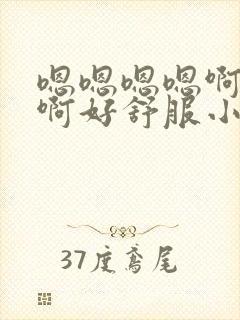 嗯嗯嗯嗯啊
啊好舒服小
37度鸢尾